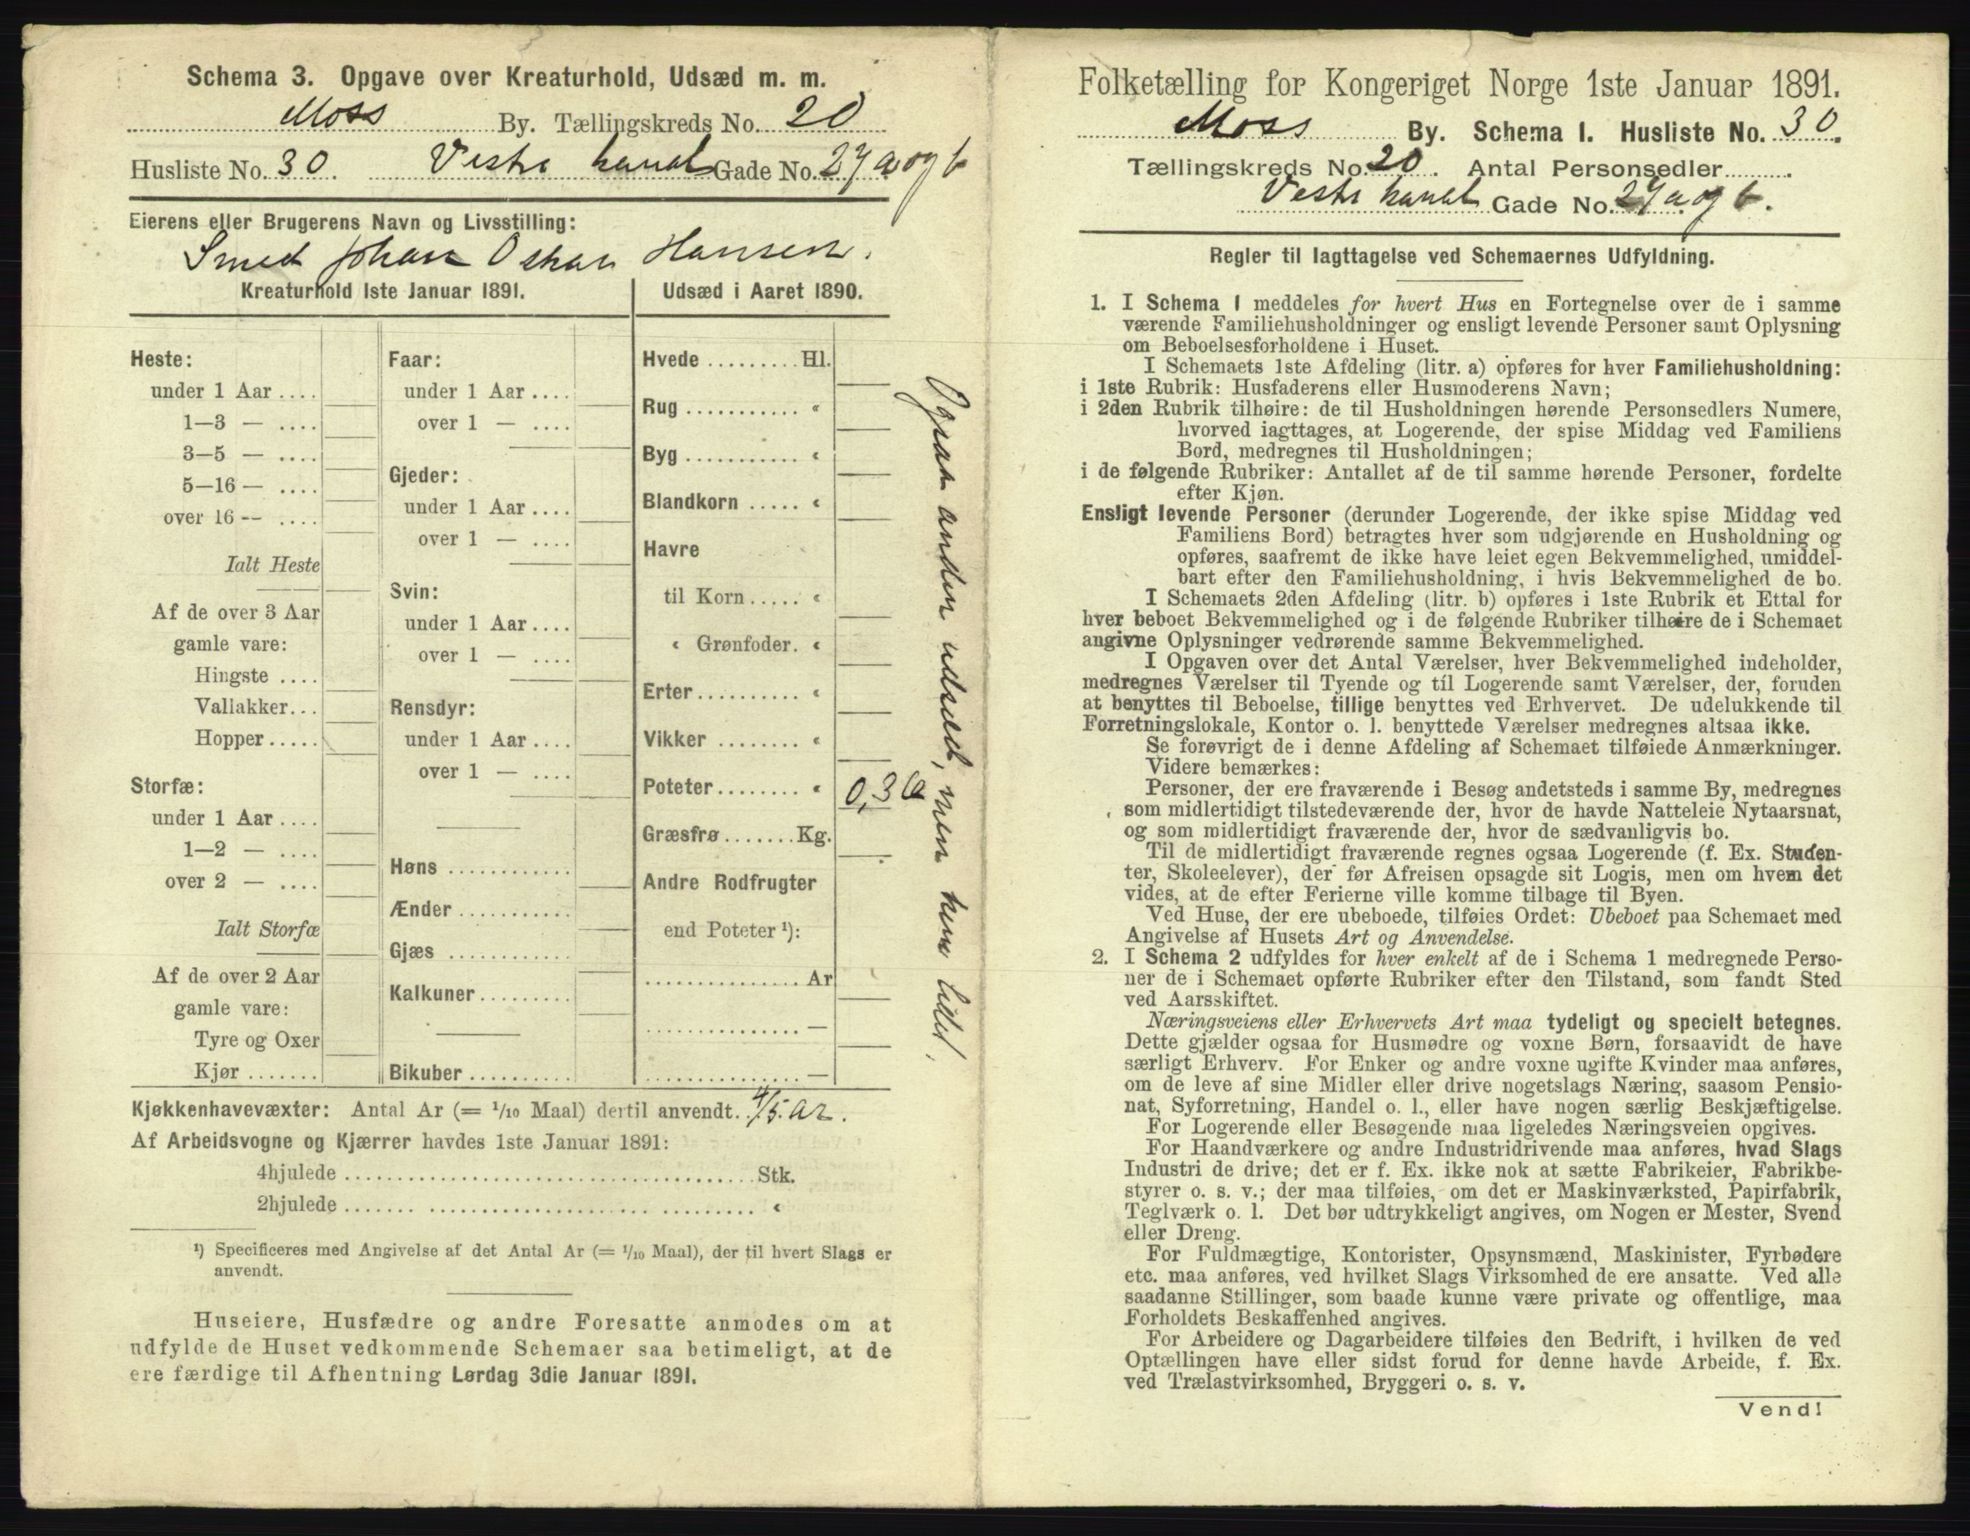 Schema 3. Opgave over Kreaturhold, Udsæd m. m.
Moss By. Tællingskreds No. 20
Husliste No. 30. Vestre kanal Gade No. 27 a og b
Eierens eller Brugerens Navn og Livsstilling:
Smed Johan Oskar Hansen.
Kreaturhold 1ste Januar 1891.
Heste:
under 1 Aar ....
1—3 — ....
3—5 — ....
5—16 — ....
over 16 — ....
Ialt Heste
Af de over 3 Aar
gamle vare:
Hingste ....
Vallakker...
Hopper.....
Storfæ:
under 1 Aar ....
1—2 — ....
over 2 — ....
Ialt Storfæ
Af de over 2 Aar
gamle vare:
Tyre og Oxer
Kjør.......
Faar:
under 1 Aar ....
over 1 — ....
Gjeder:
under 1 Aar ....
over 1 — ....
Svin:
under 1 Aar ....
over 1 — ....
Rensdyr:
under 1 Aar ....
over 1 — ....
Høns ............
Ænder...........
Gjæs ...........
Kalkuner.........
Bikuber..........
Udsæd i Aaret 1890.
Hvede ......... Hl.
Rug ........... "
Byg ........... "
Blandkorn ..... "
Havre
til Korn..... "
" Grønfoder. "
Erter .......... "
Vikker ........ "
Poteter........ " 0,36
Græsfrø....... Kg.
Andre Rodfrugter
end Poteter ¹):
............... Ar
............... —
............... —
Ogsaa anden udsæd, men kun lidet.
Kjøkkenhavevæxter: Antal Ar (= 1/10 Maal) dertil anvendt. 4/5 ar.
Af Arbeidsvogne og Kjærrer havdes 1ste Januar 1891:
4hjulede ....................................... Stk.
2hjulede ....................................... "
¹) Specificeres med Angivelse af det Antal Ar (= 1/10 Maal), der til hvert Slags er
anvendt.
Huseiere, Husfædre og andre Foresatte anmodes om at
udfylde de Huset vedkommende Schemaer saa betimeligt, at de
ere færdige til Afhentning Lørdag 3die Januar 1891.
Folketælling for Kongeriget Norge 1ste Januar 1891.
Moss By. Schema 1. Husliste No. 30.
Tællingskreds No. 20. Antal Personsedler..........
Vestre kanal Gade No. 27 a og b.
Regler til Iagttagelse ved Schemaernes Udfyldning.
1. I Schema 1 meddeles for hvert Hus en Fortegnelse over de i samme
værende Familiehusholdninger og ensligt levende Personer samt Oplysning
om Beboelsesforholdene i Huset.
I Schemaets 1ste Afdeling (litr. a) opføres for hver Familiehusholdning:
i 1ste Rubrik: Husfaderens eller Husmoderens Navn;
i 2den Rubrik tilhøire: de til Husholdningen hørende Personsedlers Numere,
hvorved iagttages, at Logerende, der spise Middag ved Familiens
Bord, medregnes til Husholdningen;
i de følgende Rubriker: Antallet af de til samme hørende Personer, fordelte
efter Kjøn.
Ensligt levende Personer (derunder Logerende, der ikke spise Middag ved
Familiens Bord) betragtes hver som udgjørende en Husholdning og
opføres, saafremt de ikke have leiet egen Bekvemmelighed, umiddel-
bart efter den Familiehusholdning, i hvis Bekvemmelighed de bo.
I Schemaets 2den Afdeling (litr. b) opføres i 1ste Rubrik et Ettal for
hver beboet Bekvemmelighed og i de følgende Rubriker tilhøire de i Schemaet
angivne Oplysninger vedrørende samme Bekvemmelighed.
I Opgaven over det Antal Værelser, hver Bekvemmelighed indeholder,
medregnes Værelser til Tyende og til Logerende samt Værelser, der, foruden
at benyttes til Beboelse, tillige benyttes ved Erhvervet. De udelukkende til
Forretningslokale, Kontor o. l. benyttede Værelser medregnes altsaa ikke.
Se forøvrigt de i denne Afdeling af Schemaet tilføiede Anmærkninger.
Videre bemærkes:
Personer, der ere fraværende i Besøg andetsteds i samme By, medregnes
som midlertidigt tilstedeværende der, hvor de havde Natteleie Nytaarsnat,
og som midlertidigt fraværende der, hvor de sædvanligvis bo.
Til de midlertidigt fraværende regnes ogsaa Logerende (f. Ex. Studen-
ter, Skoleelever), der før Afreisen opsagde sit Logis, men om hvem det
vides, at de efter Ferierne ville komme tilbage til Byen.
Ved Huse, der ere ubeboede, tilføies Ordet: Ubeboet paa Schemaet med
Angivelse af Husets Art og Anvendelse.
2. I Schema 2 udfyldes for hver enkelt af de i Schema 1 medregnede Perso-
ner de i Schemaet opførte Rubriker efter den Tilstand, som fandt Sted
ved Aarsskiftet.
Næringsveiens eller Erhvervets Art maa tydeligt og specielt betegnes.
Dette gjælder ogsaa for Husmødre og voxne Børn, forsaavidt de have
særligt Erhverv. For Enker og andre voxne ugifte Kvinder maa anføres,
om de leve af sine Midler eller drive nogetslags Næring, saasom Pensio-
nat, Syforretning, Handel o. l., eller have nogen særlig Beskjæftigelse.
For Logerende eller Besøgende maa ligeledes Næringsveien opgives.
For Haandværkere og andre Industridrivende maa anføres, hvad Slags
Industri de drive; det er f. Ex. ikke nok at sætte Fabrikeier, Fabrikbe-
styrer o. s. v.; der maa tilføies, om det er Maskinværksted, Papirfabrik,
Teglværk o. l. Det bør udtrykkeligt angives, om Nogen er Mester, Svend
eller Dreng.
For Fuldmægtige, Kontorister, Opsynsmænd, Maskinister, Fyrbødere
etc. maa anføres, ved hvilket Slags Virksomhed de ere ansatte. Ved alle
saadanne Stillinger, som baade kunne være private og offentlige, maa
Forholdets Beskaffenhed angives.
For Arbeidere og Dagarbeidere tilføies den Bedrift, i hvilken de ved
Optællingen have eller sidst forud for denne havde Arbeide, f. Ex.
ved Trælastvirksomhed, Bryggeri o. s. v.
Vend!